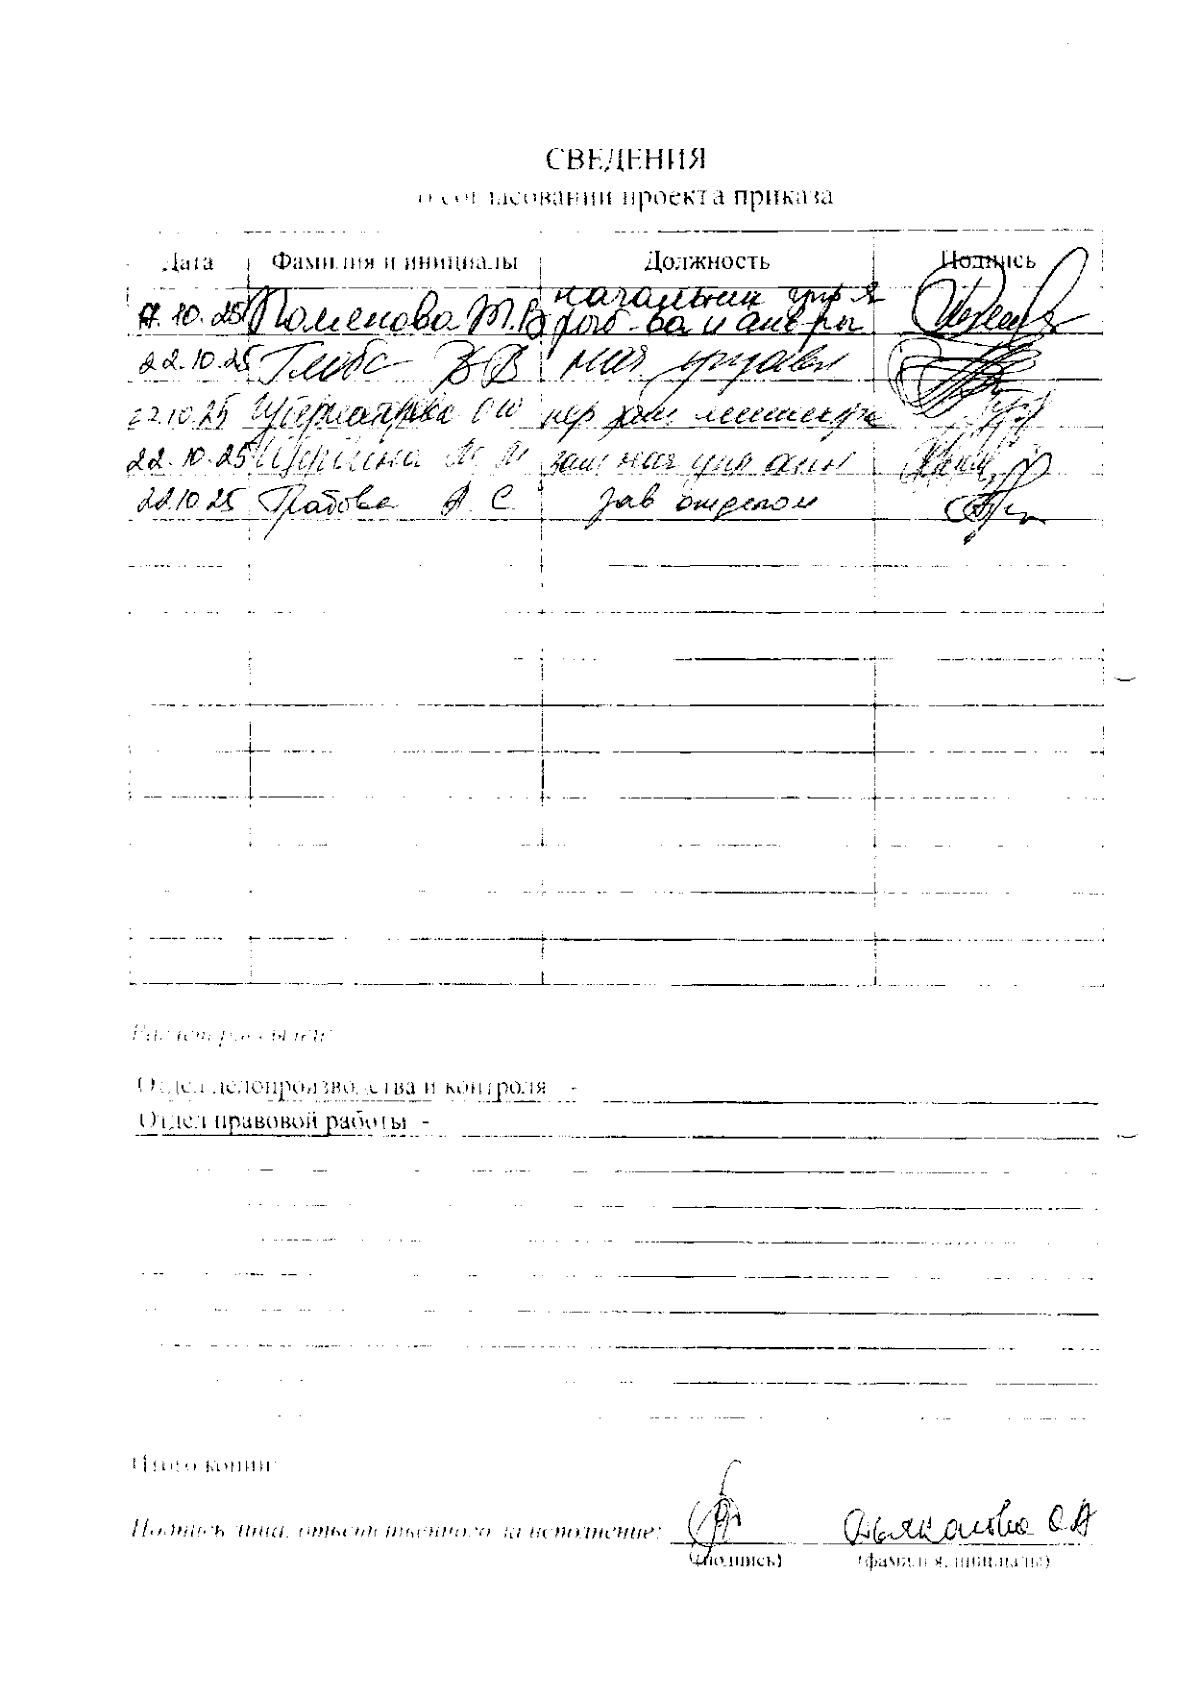 СВЕДЕНИЯ
о согласовании проекта приказа
Дата Фамилия и инициалы Должность Подпись
17.10.25 начальник упр-я
22.10.25 Глеба В В нач управл
22.10.25 О Ю пер зам министра
22.10.25 зам нач упр
22.10.25 Грабова А. С. зав отделом
Расчет рассылки:
Отдел делопроизводства и контроля -
Отдел правовой работы -
Итого копий:
Подпись лица, ответственного за исполнение:
Дьяконова О А
(подпись) (фамилия, инициалы)